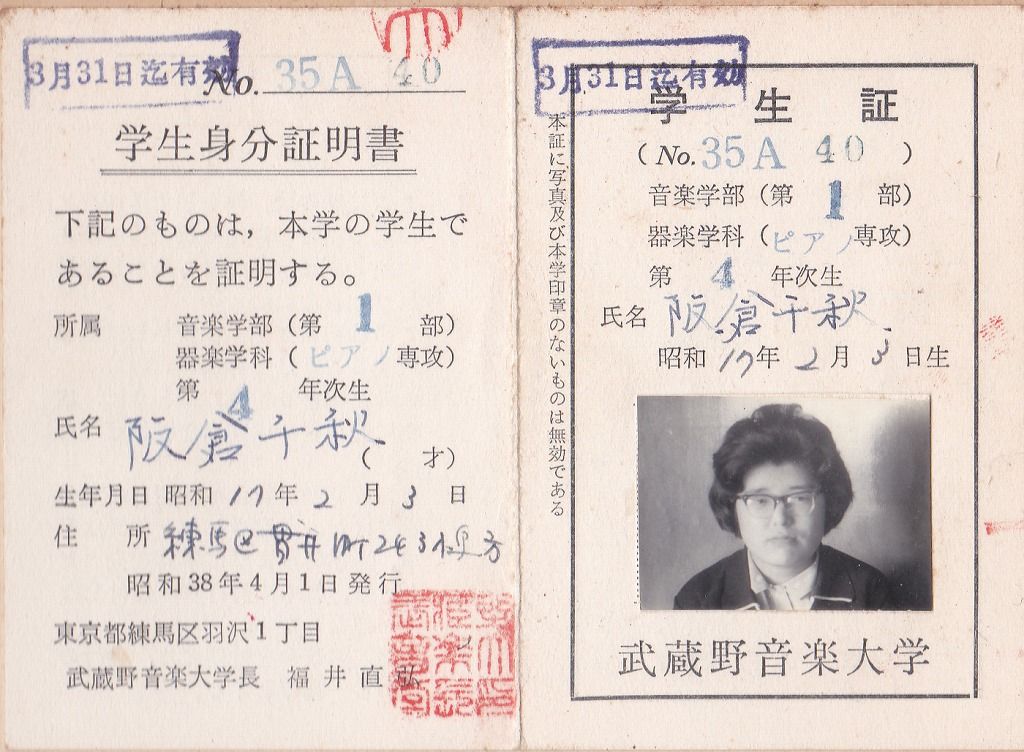 3月31日迄有効
No. 35A 40
学生身分証明書
下記のものは，本学の学生で
あることを証明する。
所属 音楽学部（第 1 部）
器楽学科（ピアノ専攻）
第 4 年次生
氏名 阪倉千秋
（ 才）
生年月日 昭和 17 年 2 月 3 日
住所 練馬区貫井町243
昭和38年4月1日発行
東京都練馬区羽沢1丁目
武蔵野音楽大学長 福井直弘
3月31日迄有効
学生証
（No. 35A 40 ）
音楽学部（第 1 部）
器楽学科（ピアノ専攻）
第 4 年次生
氏名 阪倉千秋
昭和 17年 2 月 3 日生
本証に写真及び本学印章のないものは無効である
武蔵野音楽大学